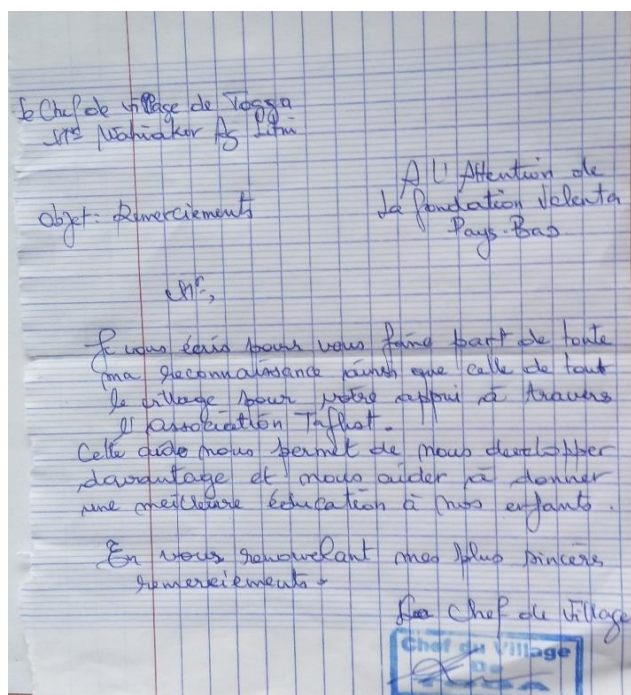 Le Chef de village de Togga
Mr Wahiakor Ag Litni
A L'Attention de
la fondation Jelenta
Pays-Bas
Objet: Remerciements
Mr,
Je vous écris pour vous faire part de toute
ma reconnaissance ainsi que celle de tout
le village pour votre appui à travers
l'association Taflist.
Cette aide nous permet de nous developper
davantage et nous aider à donner
une meilleure éducation à nos enfants.
En vous renouvelant mes plus sincères
remerciements.
Le Chef de Village
Chef du Village
De